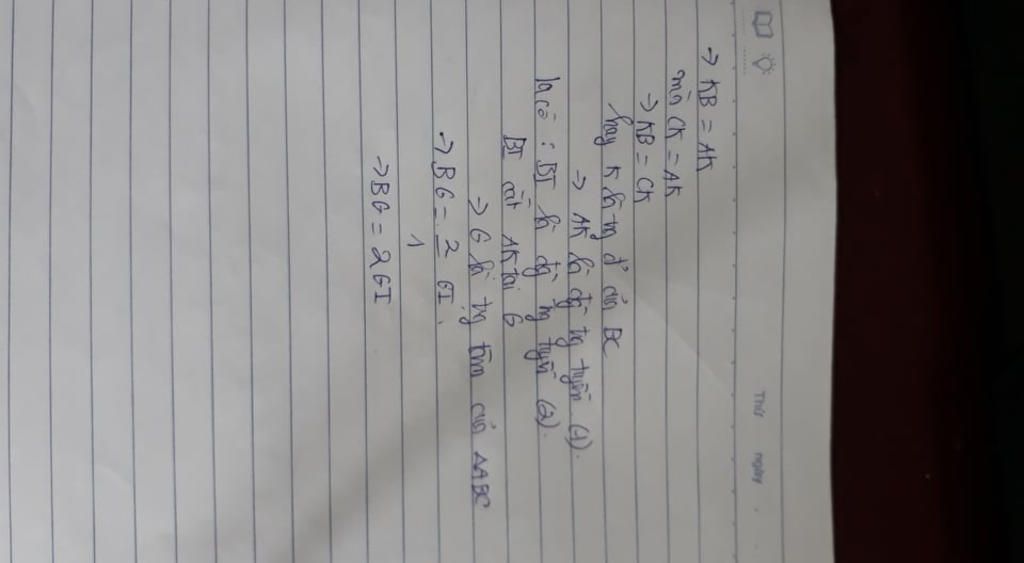 Thứ ngày
→ KB = AK
mà CK = AK
→ KB = CK
hay K là tg đ' của BC
→ AK là đg tg tuyến (1).
ta có : BI là đg tg tuyến (2).
BI cắt AK tại G
→ G là tg tâm của ΔABC
→ BG = 2/1 GI.
→ BG = 2GI